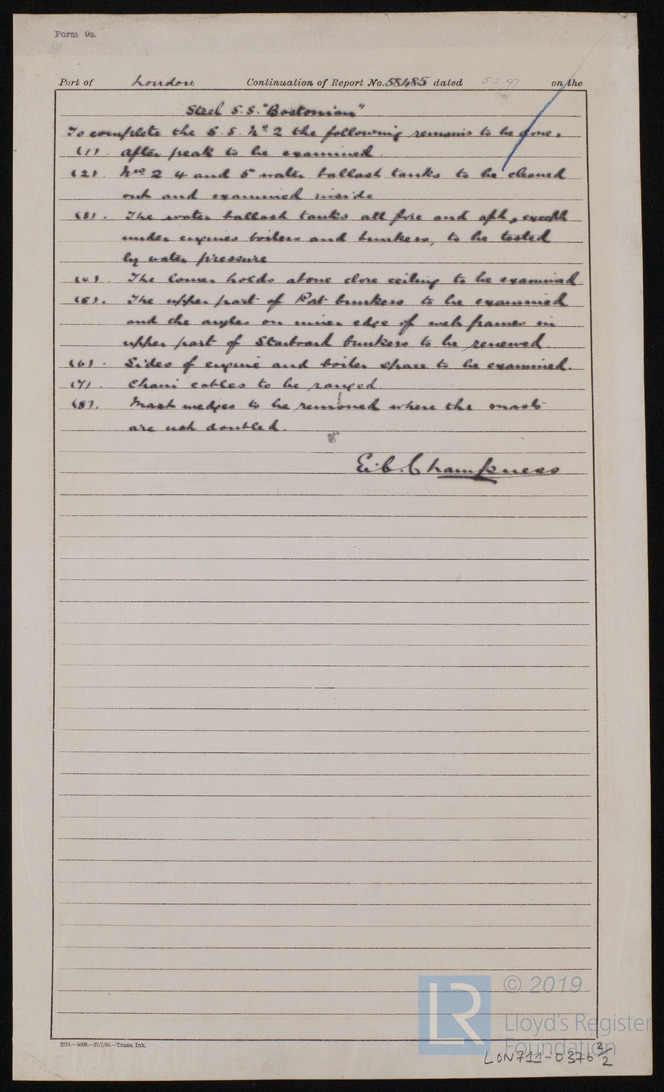 Form 9a.
Port of London Continuation of Report No. 58485 dated 5.2.97 on the
Steel S.S. "Bostonian"
To complete the S.S. No 2 the following remains to be done.
(1) After peak to be examined.
(2) Nos 2 4 and 5 water ballast tanks to be cleaned
out and examined inside
(3) The water ballast tanks all fore and aft, except
under engines boilers and bunkers, to be tested
by water pressure
(4) The lower holds above close ceiling to be examined
(5). The upper part of Port bunkers to be examined
and the angles on inner edge of web frames in
upper part of Starboard bunkers to be renewed.
(6). Sides of engine and boiler space to be examined.
(7). Chain cables to be ranged
(8). Mast wedges to be removed where the masts
are not doubled.
E.C. Champness
2274.—5000.—27/7/95.—Trans. Ink.
LR © 2019
Lloyd's Register
Foundation
LON711-0376 2/2